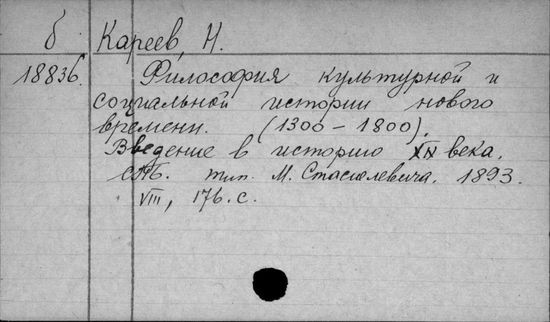 б Кареев, Н.
18836. Философия культурной и
социальной истории нового
времени. (1300 – 1800).
Введение в историю XIX века.
СПб. тип. М. Стасюлевича. 1893.
VIII, 176. с.